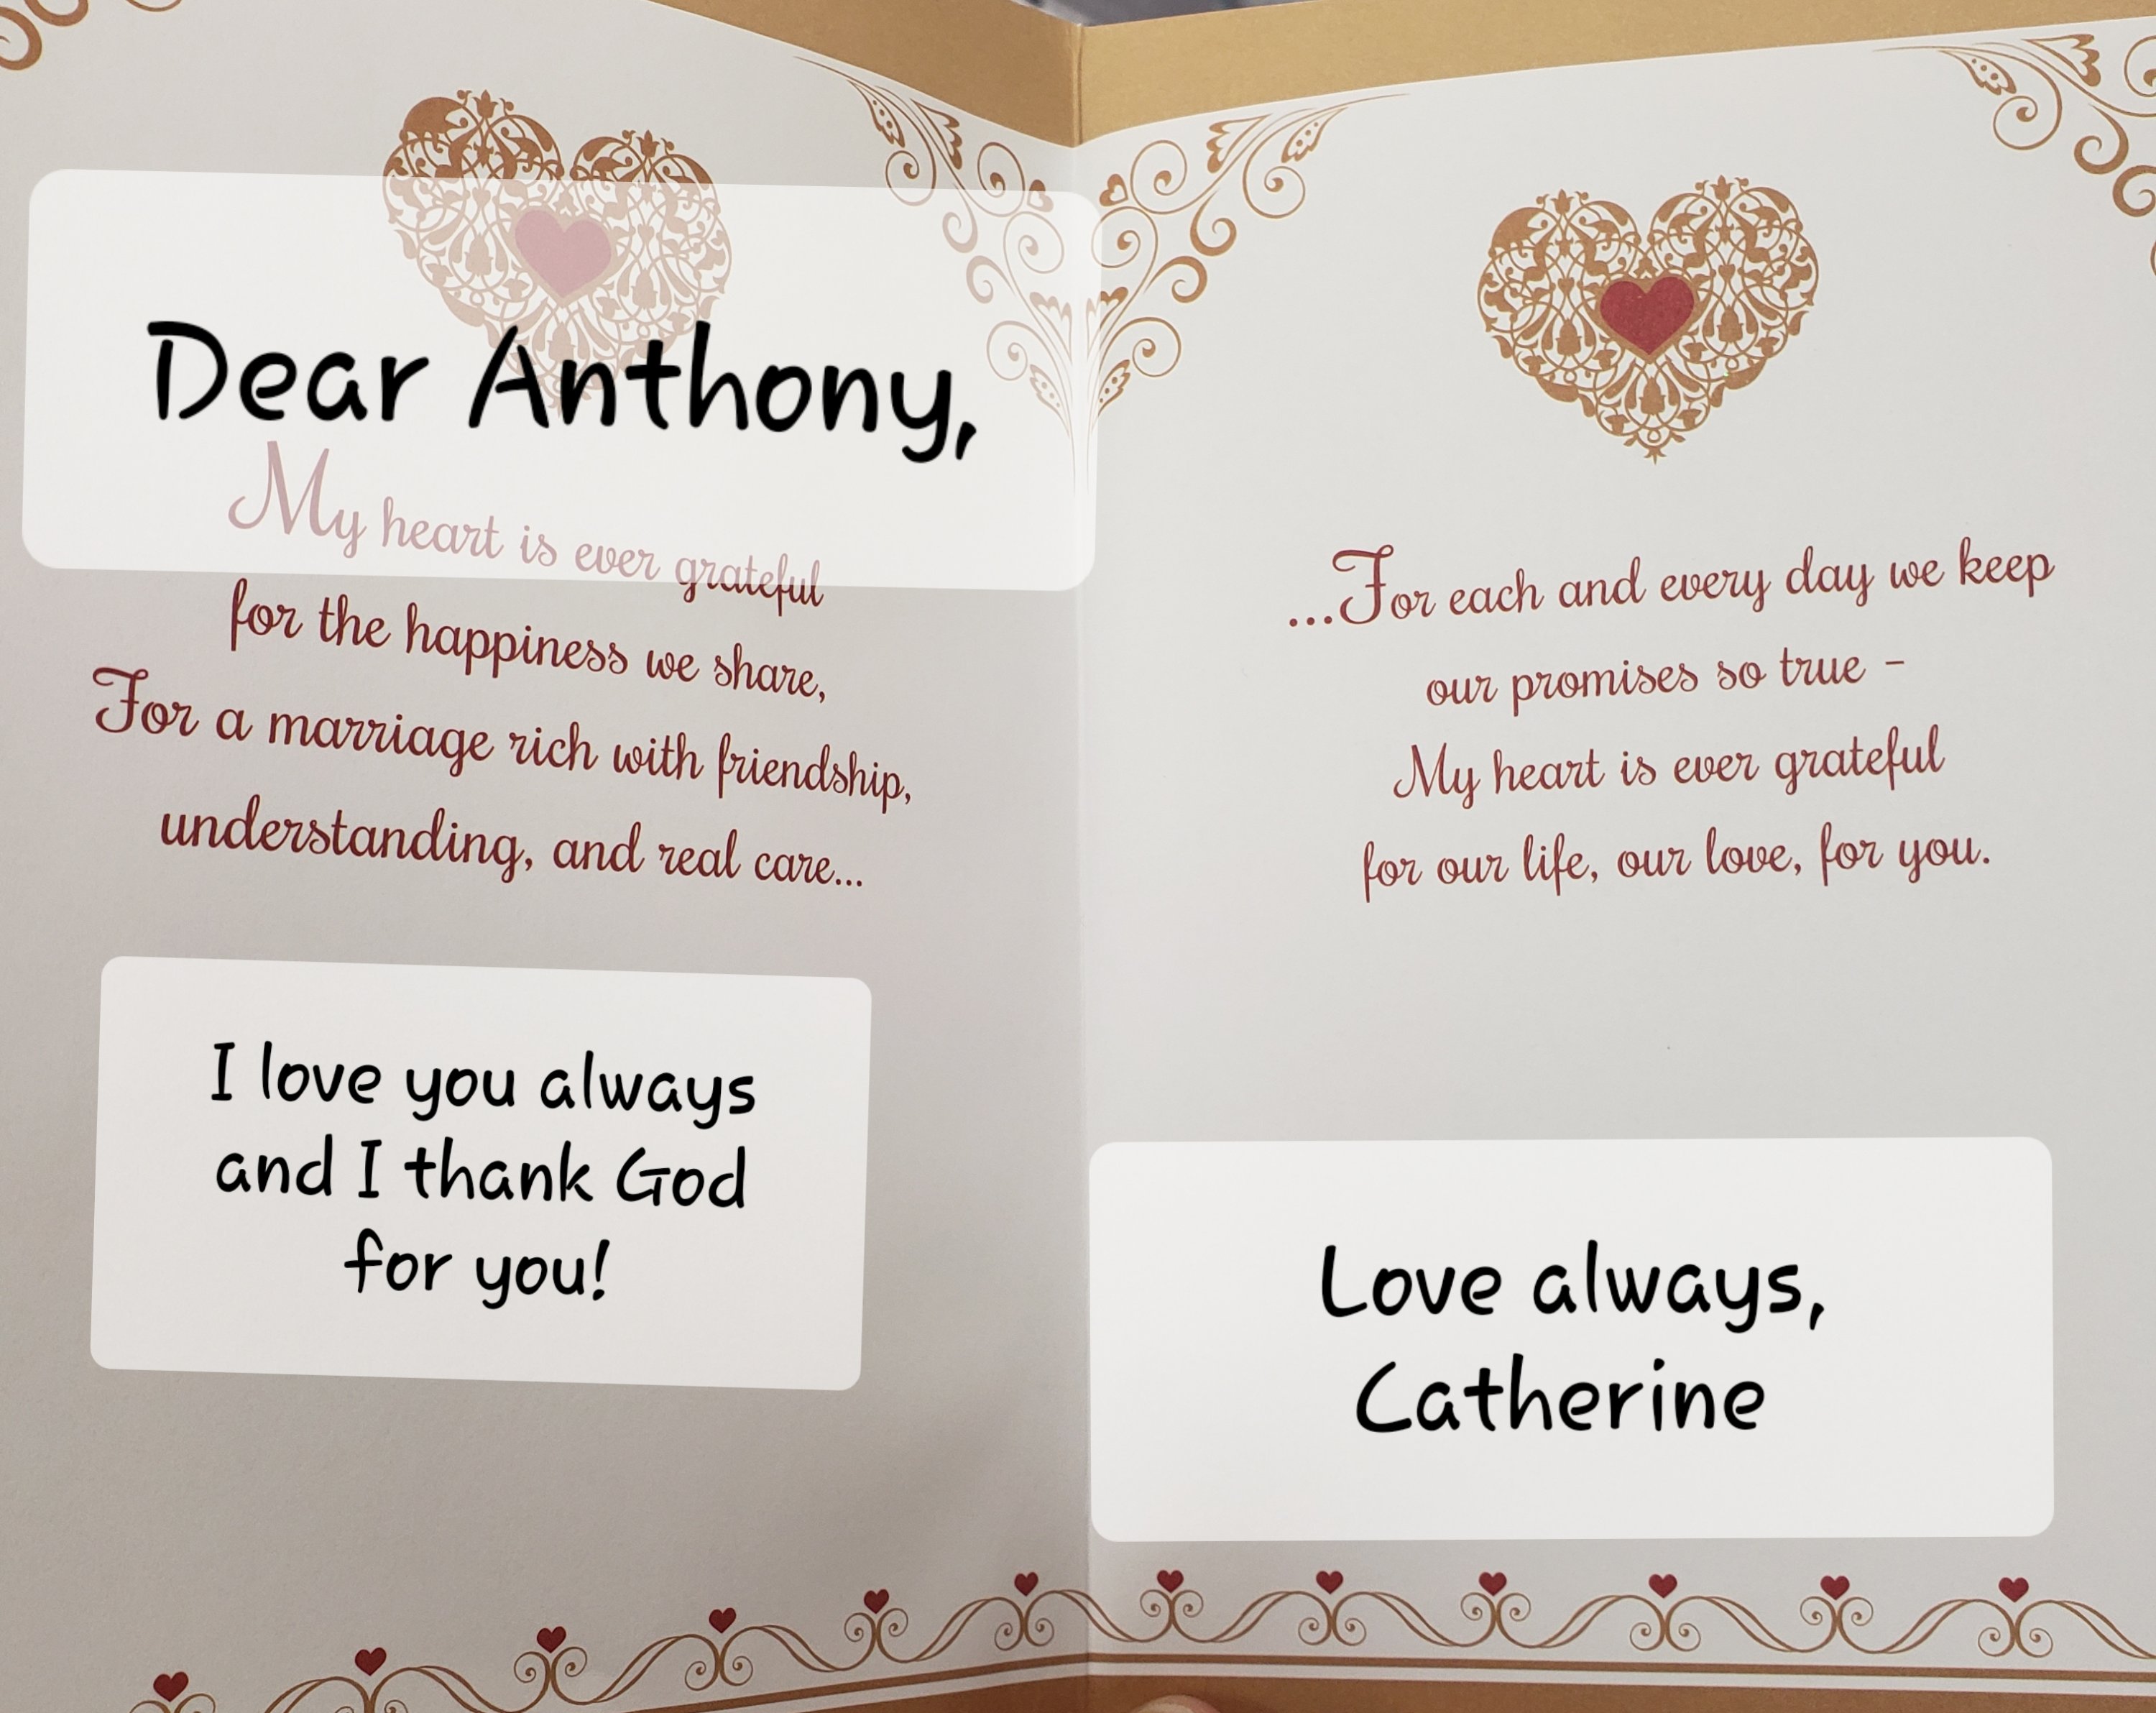 Dear Anthony,
My heart is ever grateful
for the happiness we share,
For a marriage rich with friendship,
understanding, and real care...
I love you always
and I thank God
for you!
...For each and every day we keep
our promises so true –
My heart is ever grateful
for our life, our love, for you.
Love always,
Catherine